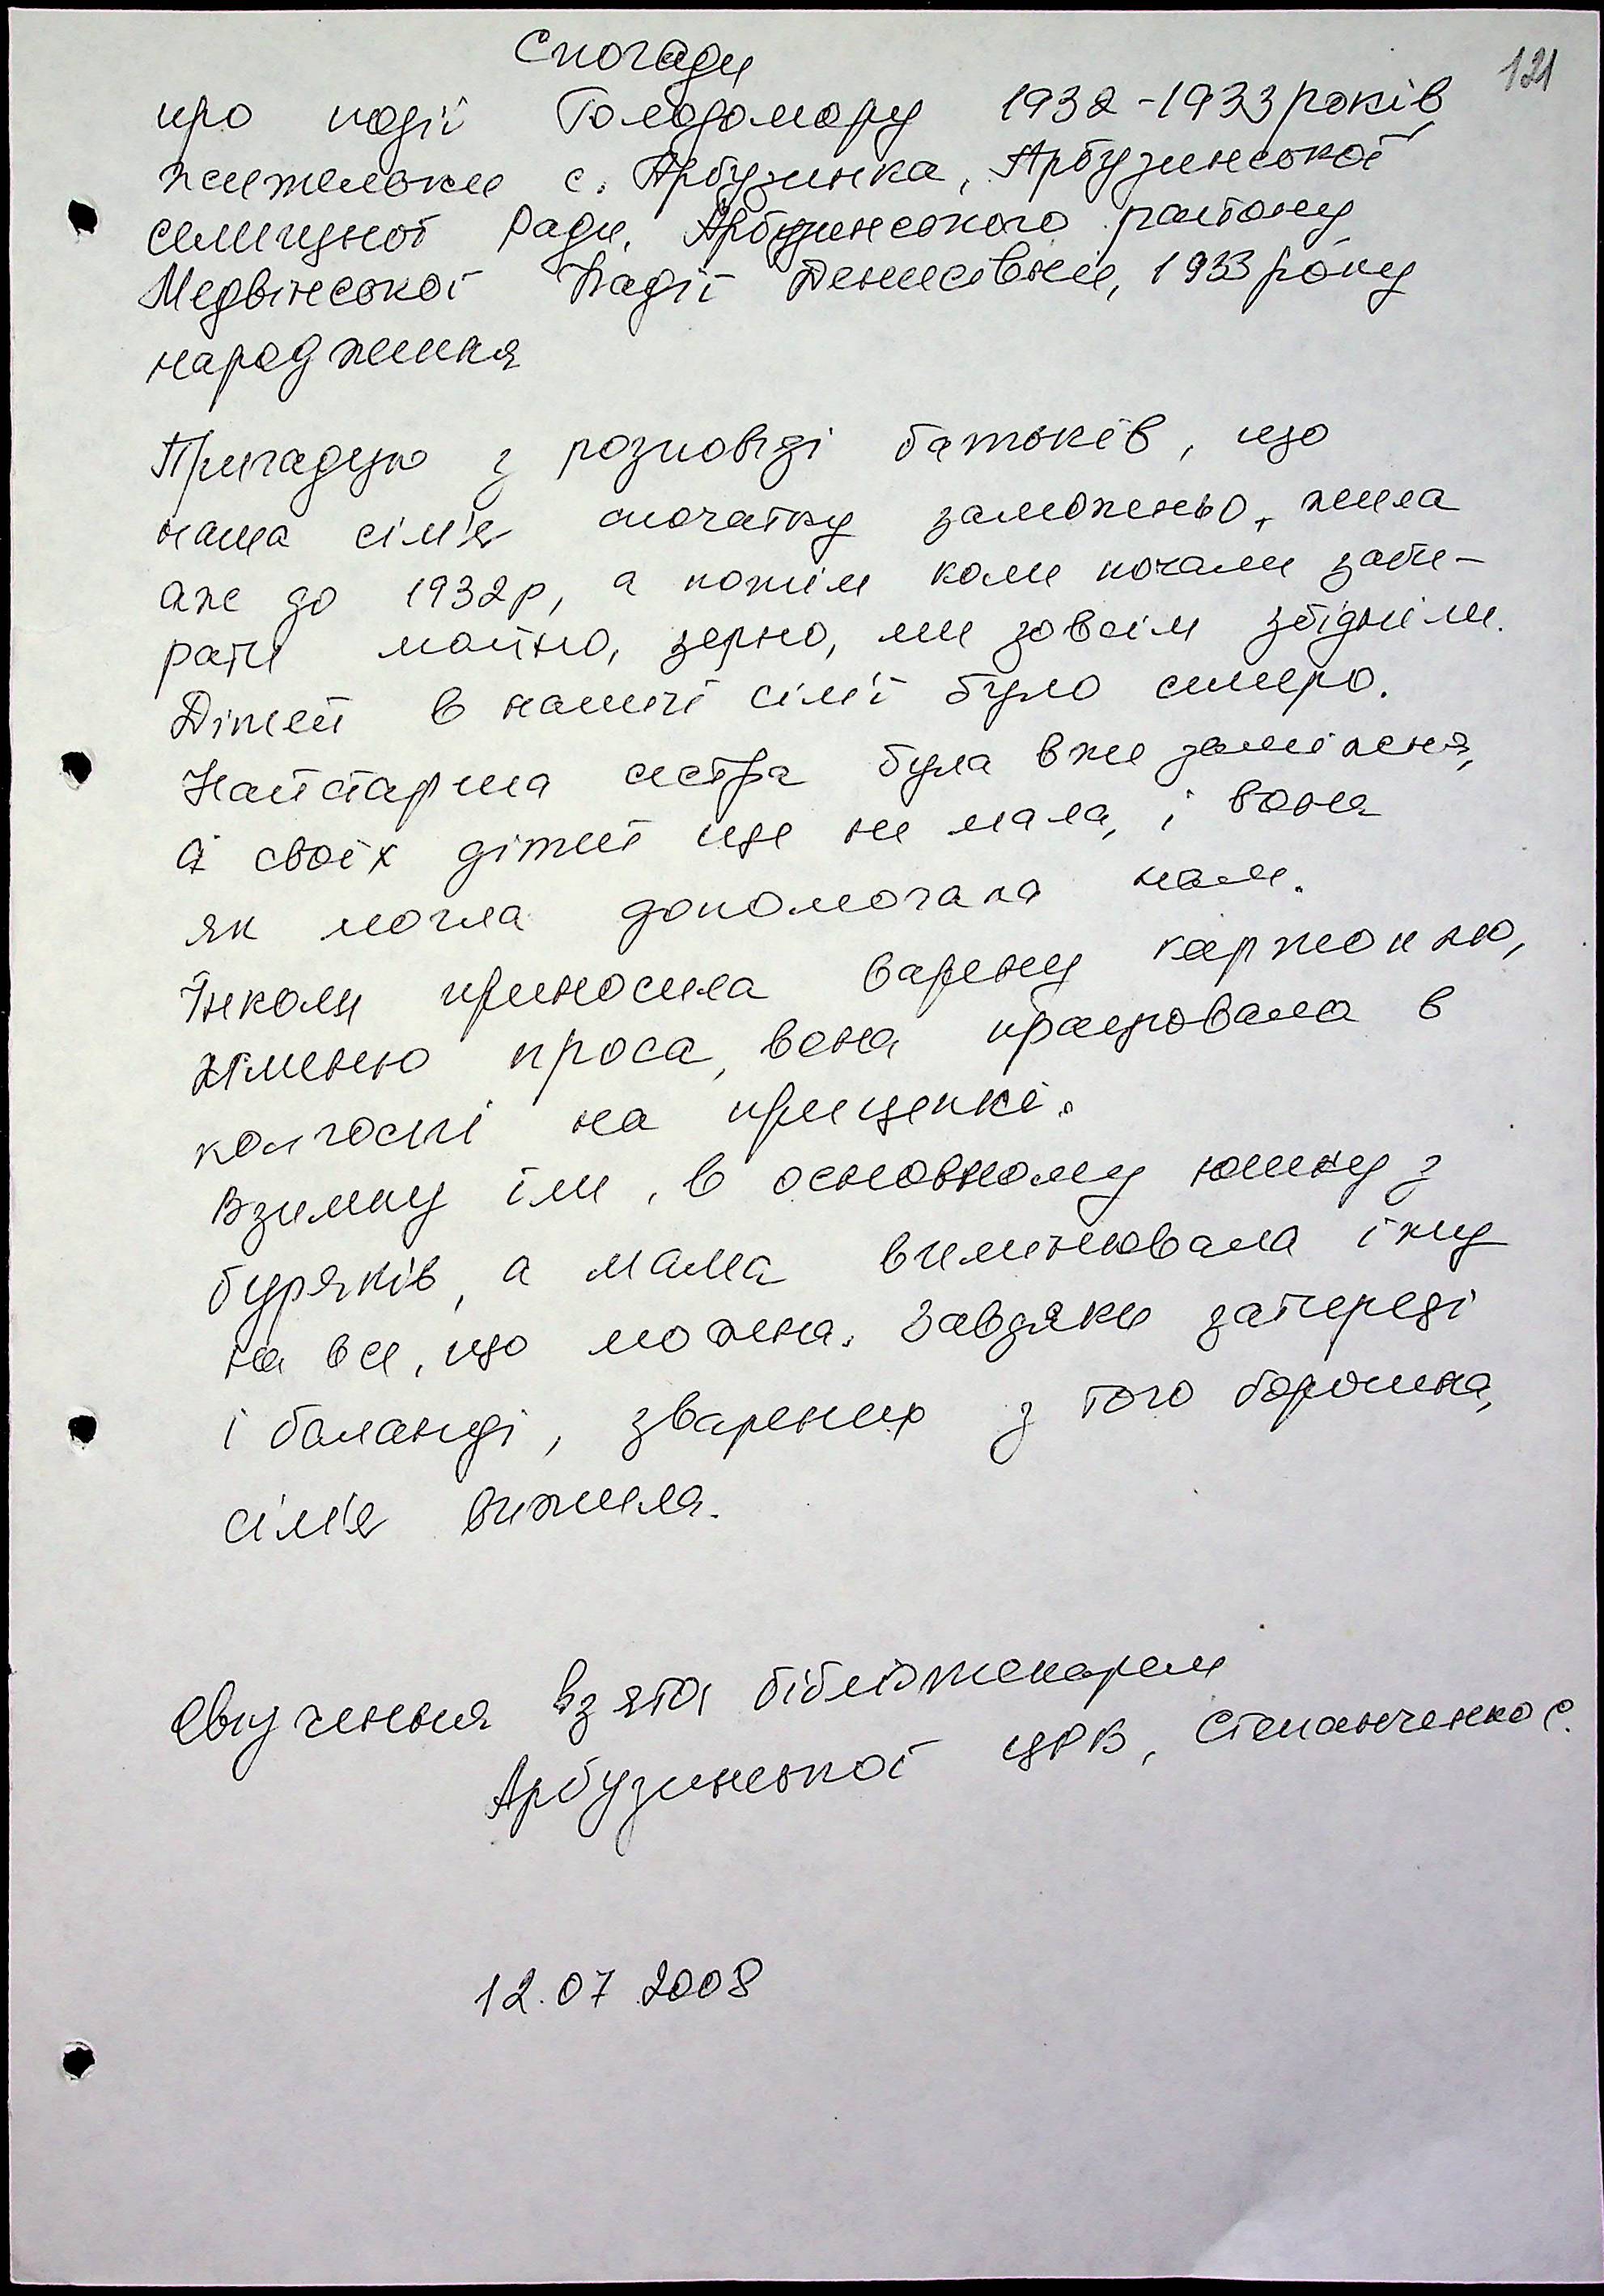 121
Спогади
про події Голодомору 1932-1933 років
жительки с. Арбузинка, Арбузинської
селищної ради, Арбузинського району
Медвінської Надії Денисівни, 1933 року
народження
Пригадую з розповіді батьків, що
наша сім'я спочатку заможньо, жила
аж до 1932р, а потім коли почали заби-
рати майно, зерно, ми зовсім збідніли.
Дітей в нашій сім'ї було семеро.
Найстарша сестра була вже заміжня,
а своїх дітей ще не мала, і вона
як могла допомогала нам.
Інколи приносила варену картоплю,
жменю проса, вона працювала в
колгоспі на прицепкі.
Взимку їли, в основному юшку з
буряків, а мама вимінювала їжу
на все, що можна. Завдяки затереді
і баланді, зварених з того борошна,
сім'я вижила.
Свідчення взята бібліотекарем
Арбузинської ЦРБ, Степанченко С.
12.07.2008